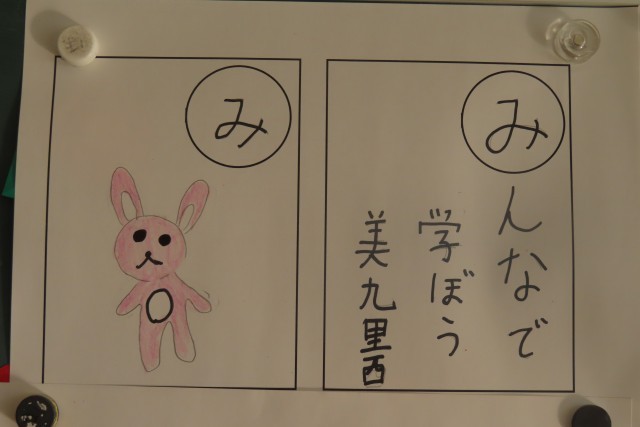 み
んなで
学ぼう
美九里西
み